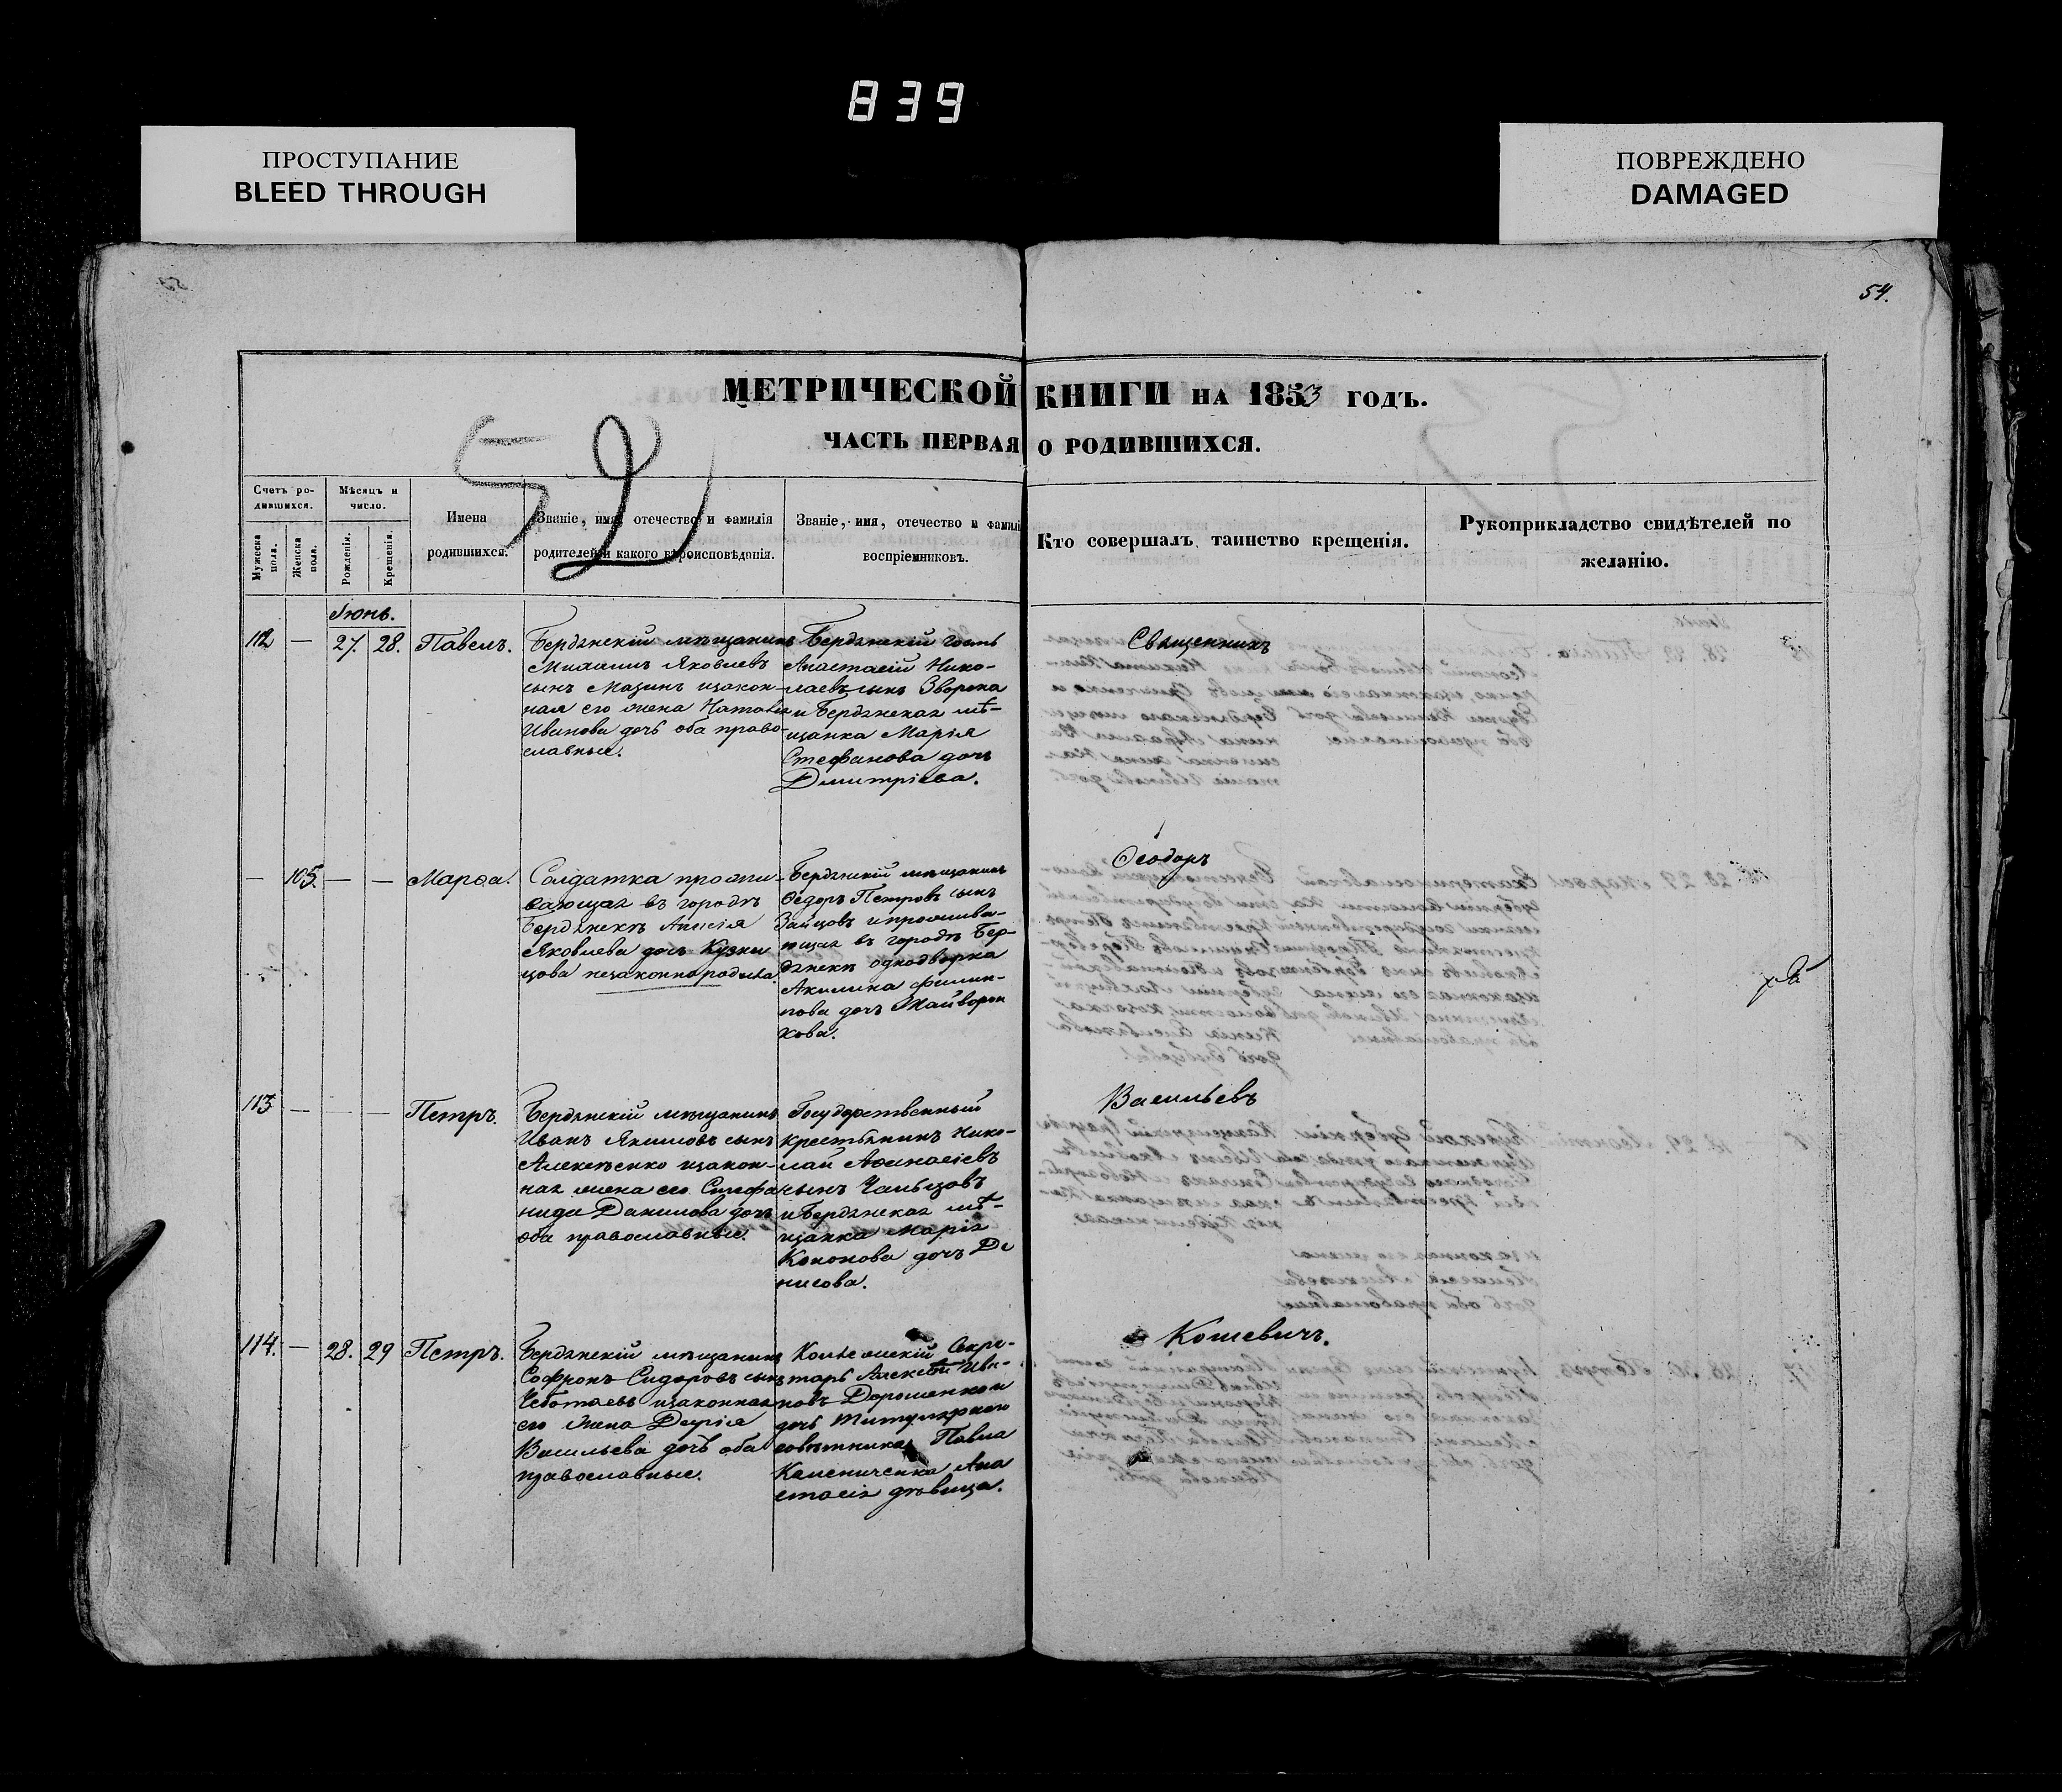 839
ПРОСТУПАНИЕ
BLEED THROUGH
ПОВРЕЖДЕНО
DAMAGED
54.
МЕТРИЧЕСКОЙ КНИГИ НА 1853 ГОДЪ.
ЧАСТЬ ПЕРВАЯ О РОДИВШИХСЯ.
52
Счетъ ро-
дившихся.
Мужеска
пола.
Женска
пола.
Мѣсяцъ и
число.
Рожденія.
Крещенія.
Имена
родившихся.
Званіе, имя, отечество и фамилія
родителей и какого вѣроисповѣданія.
Званіе, имя, отечество и фамилія
воспріемниковъ.
Кто совершалъ таинство крещенія.
Рукоприкладство свидѣтелей по
желанію.
Іюнь.
112 — 27. 28. Павелъ.
Бердянскій мѣщанинъ
Михаилъ Яковлевъ
сынъ Мазинъ изакон-
ная его жена Наталія
Иванова дочь оба право-
славные.
Бердянскій гость
Анастасій Нико-
лаевъ сынъ Зворона
и Бердянская мѣ-
щанка Марія
Стефанова дочь
Дмитріева.
Священникъ
— 105. — — Марѳа.
Солдатка прожи-
вающая въ городѣ
Бердянскѣ Анисія
Яковлева дочь Кузне
цова незаконнородила
Бердянскій мѣщанинъ
Ѳедоръ Петровъ сынъ
Зайцовъ ипрожива-
ющая въ городѣ Бер-
дянскѣ однодворка
Акилина Филип-
пова дочь Майворон
кова.
Ѳеодоръ
113 — — — Петръ.
Бердянскій мѣщанинъ
Иванъ Якимовъ сынъ
Алексѣенко изакон-
ная жена его Стефа
нида Данилова дочь
оба православные.
Государственный
крестьянинъ Нико-
лай Аѳанасіевъ
сынъ Чальцовъ
и Бердянская мѣ-
щанка Марія
Кононова дочь Де
нисова.
Васильевъ
114. — 28. 29 Петръ.
Бердянскій мѣщанинъ
Софронъ Сидоровъ сынъ
Чеботаевъ изаконная
его жена
Васильева дочь оба
православные.
Секре-
тарь Алексѣй Ива-
новъ Дорошенко и
дочь Титулярнаго
совѣтника Павла
Камениченка Ана
стасія дѣвица.
Кошевичъ.